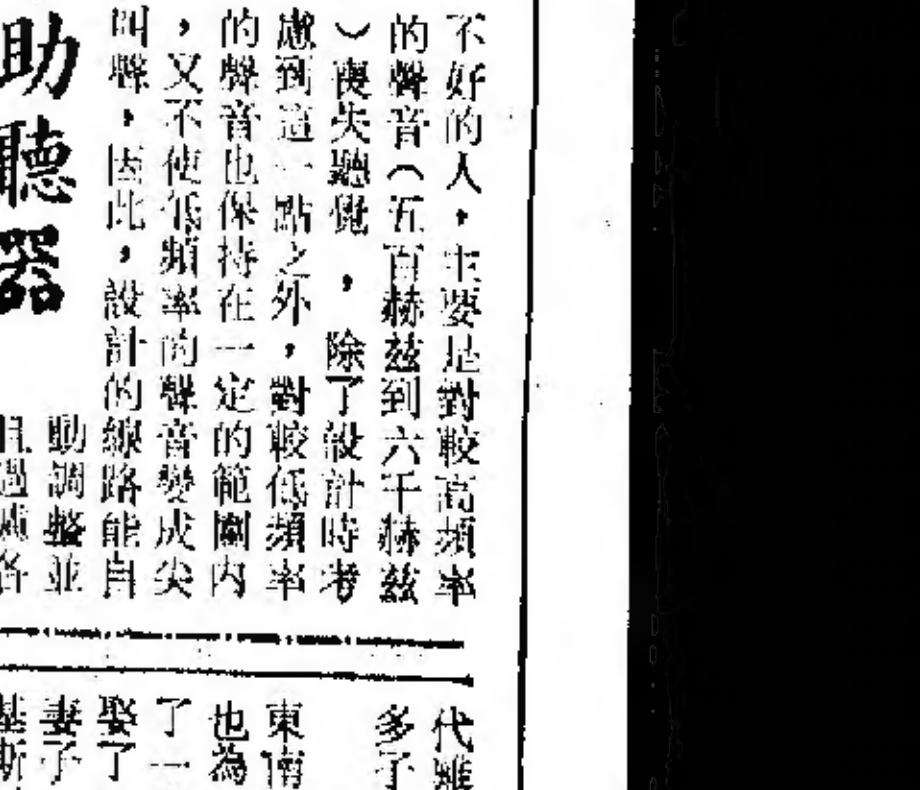 不好的人，主要是對較高頻率
的聲音（五百赫茲到六千赫茲
）喪失聽覺，除了設計時考
慮到這一點之外，對較低頻率
的聲音也保持在一定的範圍內
，又不使低頻率的聲音變成尖
叫聲，因此，設計的線路能自
動調整並
且過濾各
助聽器
代雖
多子
東南
也為
了一
娶了
妻子
基斯